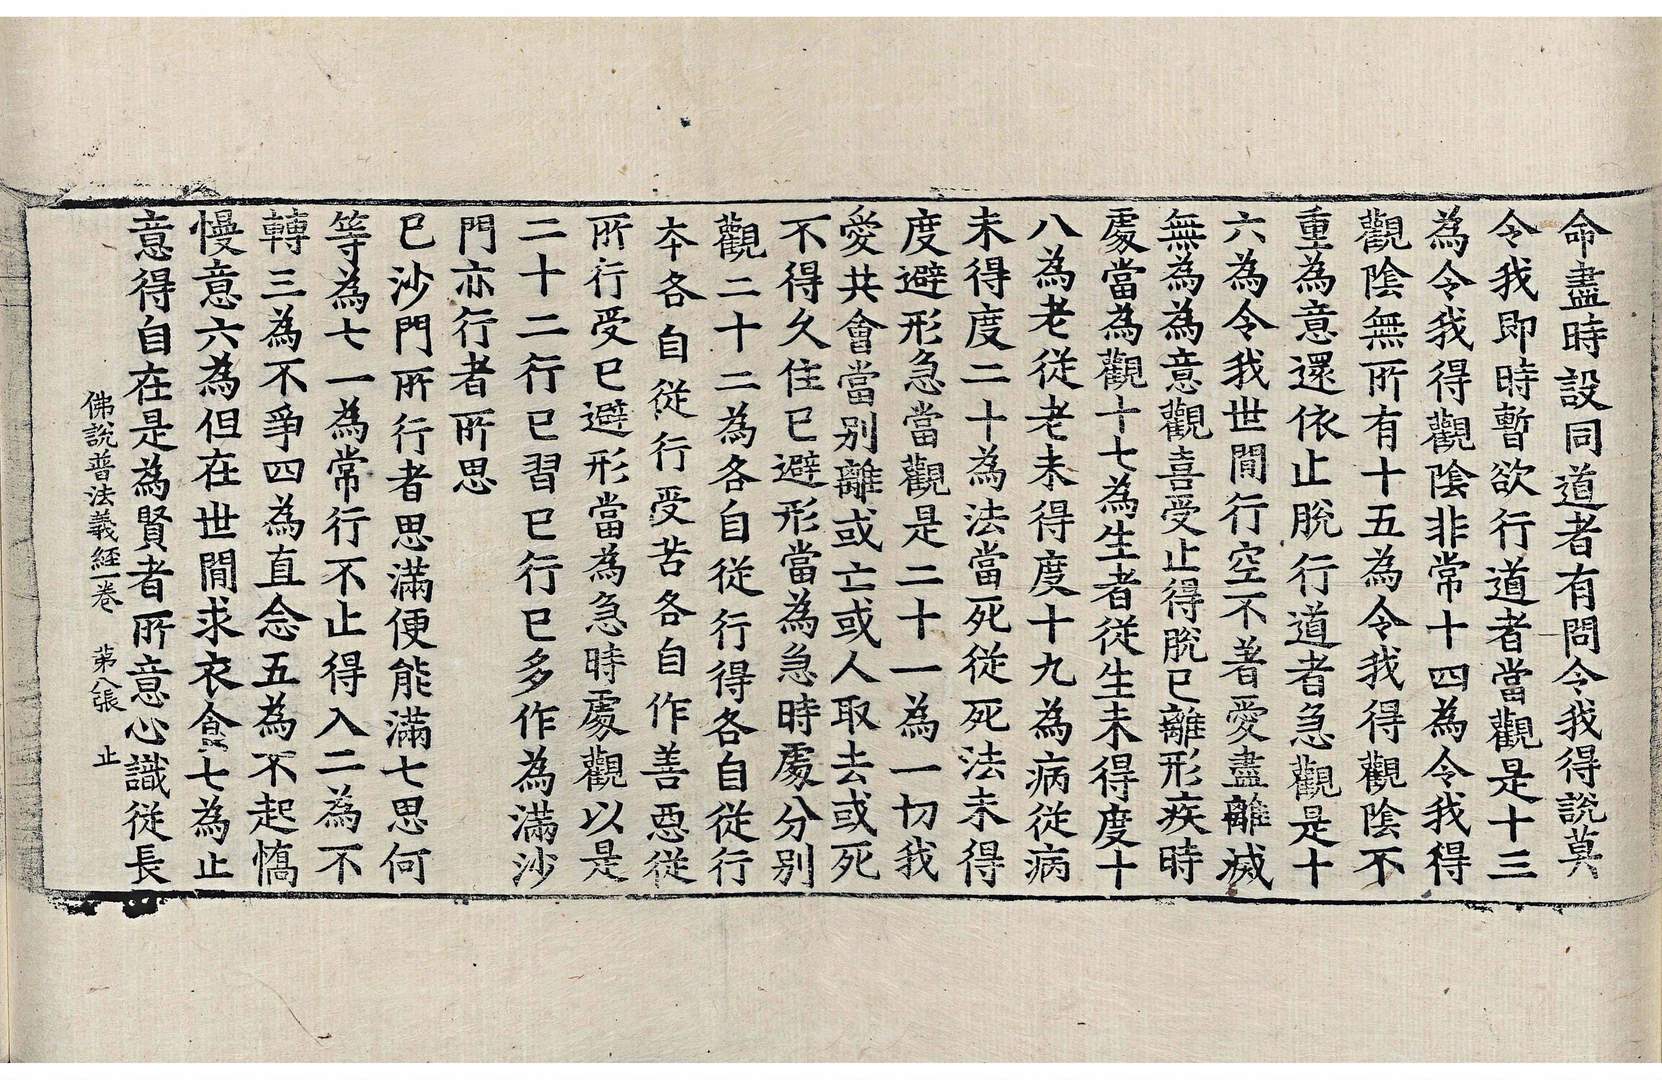 命盡時設同道者有問令我得說莫
令我即時暫欲行道者當觀是十三
為令我得觀陰非常十四為令我得
觀陰無所有十五為令我得觀陰不
重為意還依止脫行道者急觀是十
六為令我世間行空不著愛盡離滅
無為為意觀喜受止得脫已離形疾時
處當為觀十七為生者從生未得度十
八為老從老未得度十九為病從病
未得度二十為法當死從死法未得
度避形急當觀是二十一為一切我
愛共會當別離或亡或人取去或死
不得久住已避形當為急時處分別
觀二十二為各自從行得各自從行
本各自從行受苦各自作善惡從
所行受已避形當為急時處觀以是
二十二行已習已行已多作為滿沙
門亦行者所思
已沙門所行者思滿便能滿七思何
等為七一為常行不止得入二為不
轉三為不爭四為直念五為不起憍
慢意六為但在世間求衣食七為止
意得自在是為賢者所意心識從長
佛說普法義經一卷　第八張　止